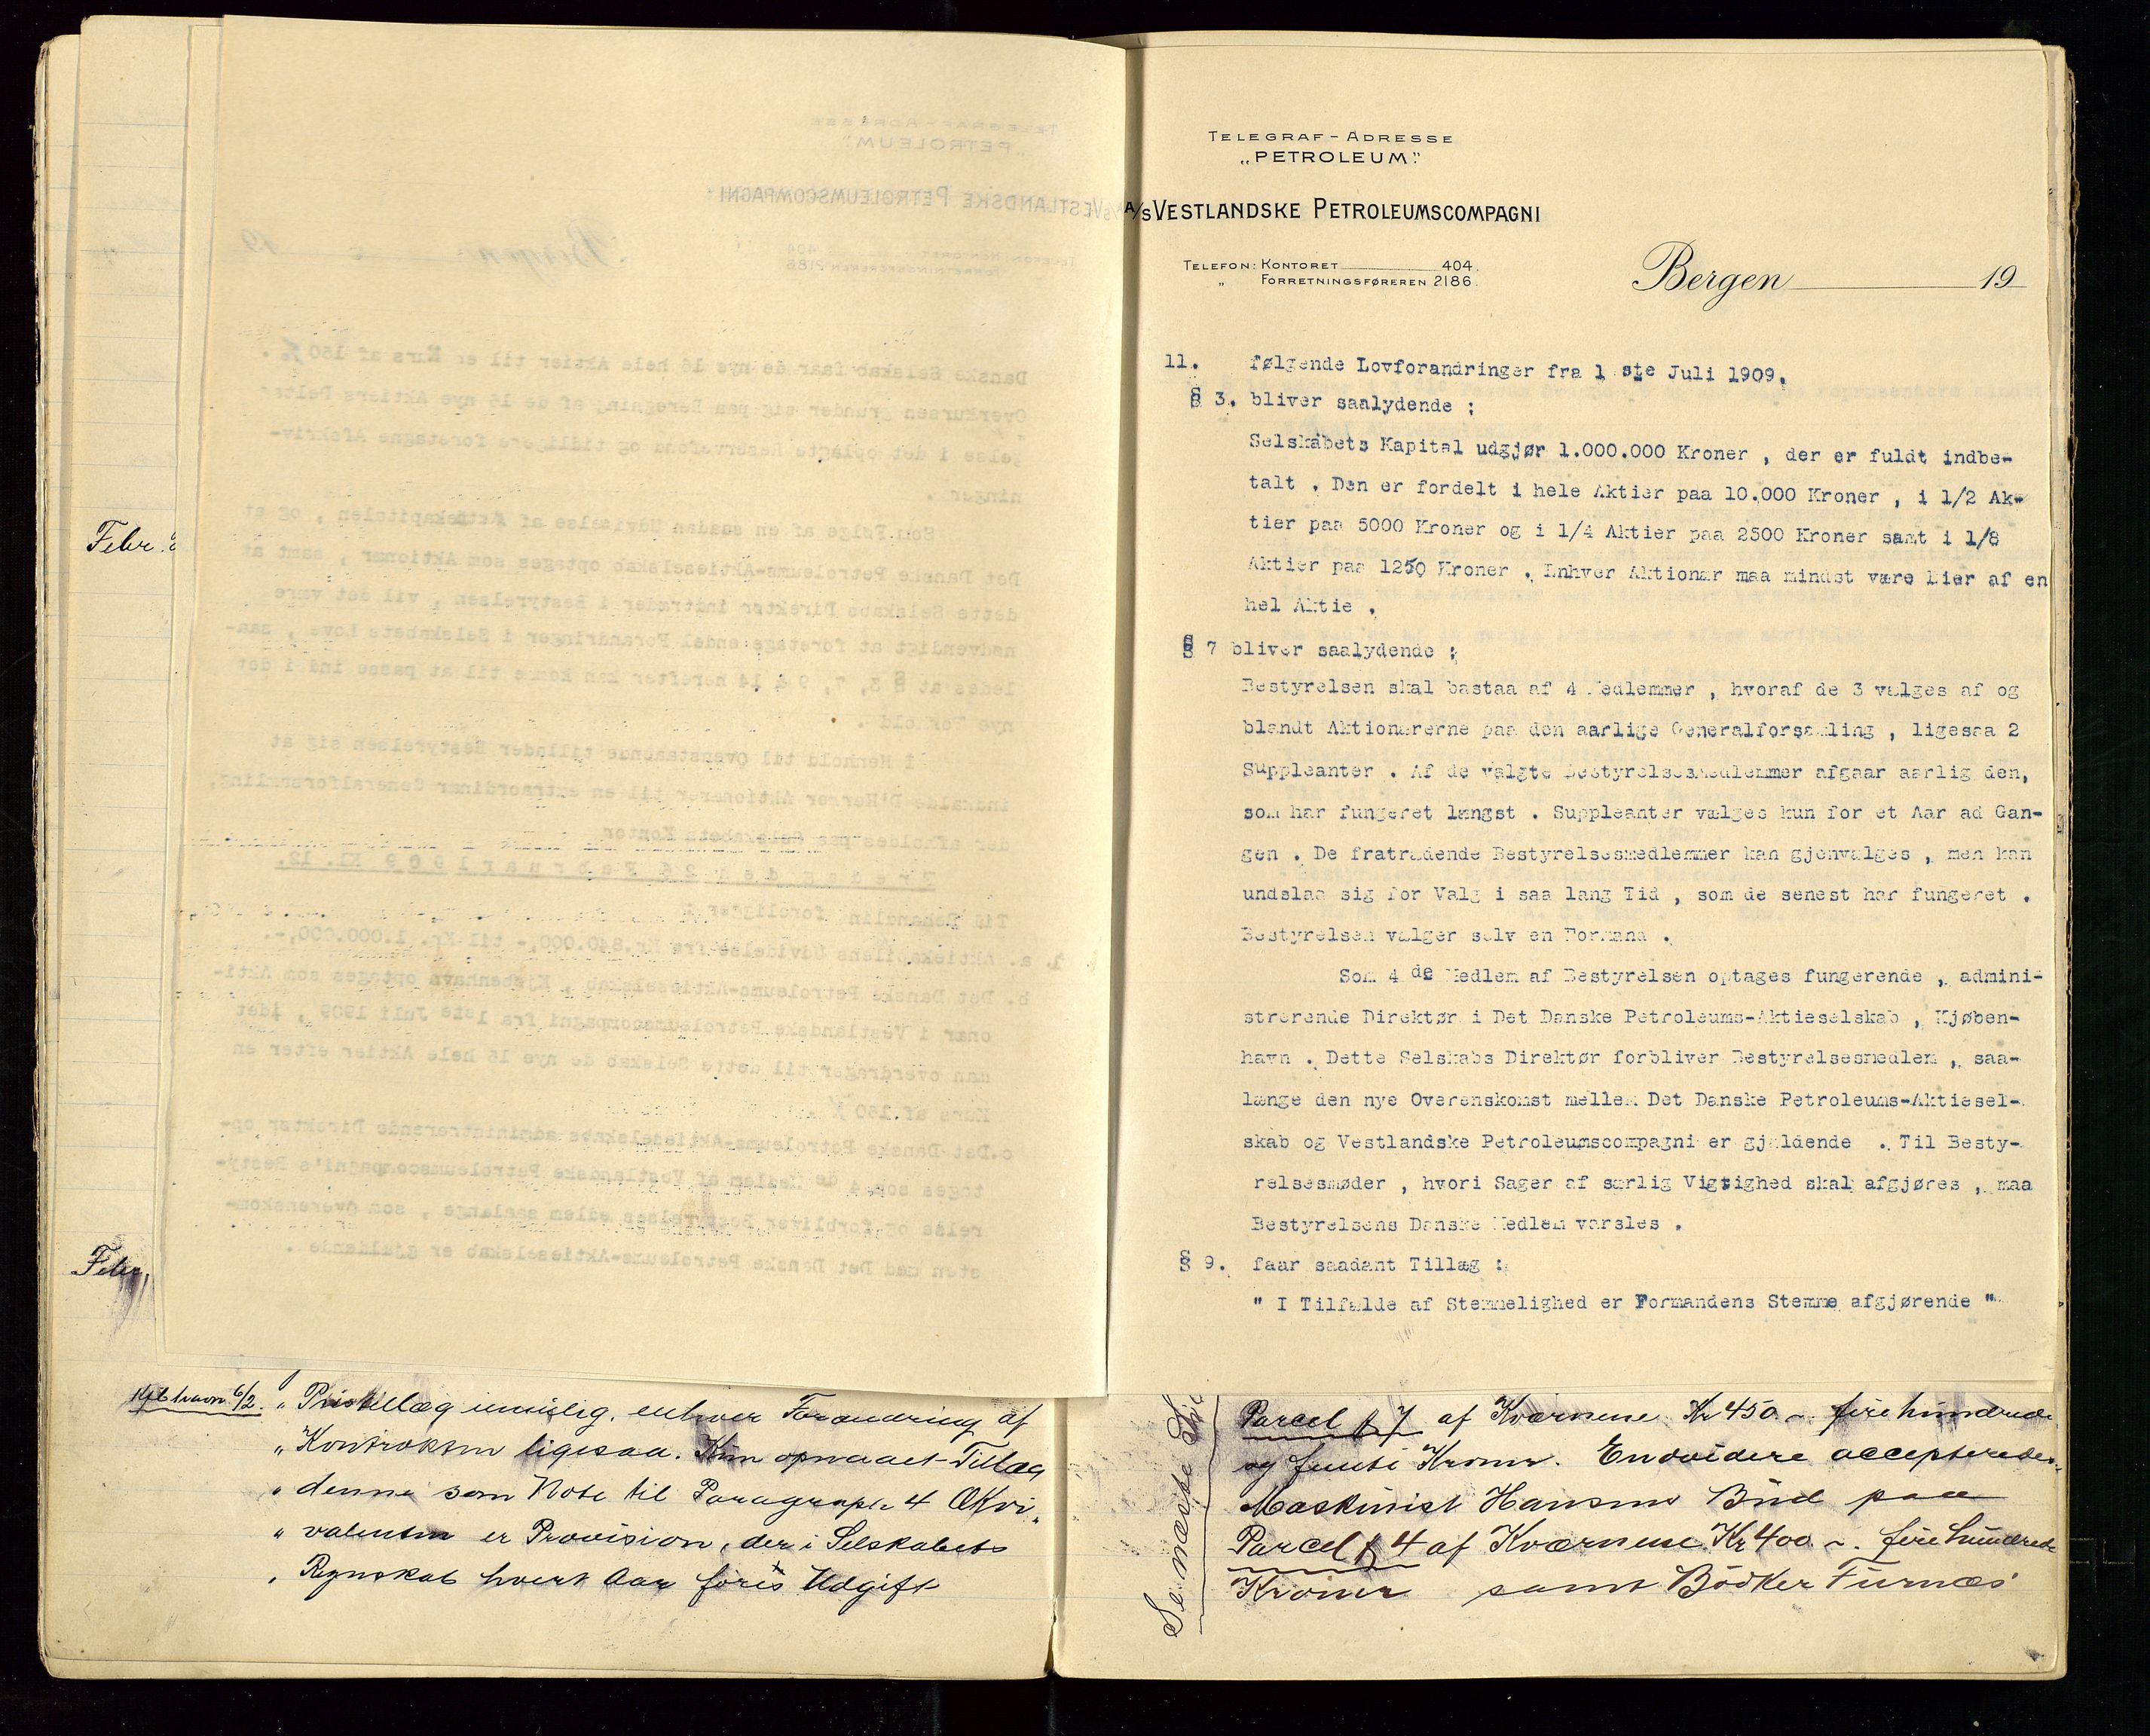 Febr.
Febr.
Kjøbhavn 6/2. „Pristillæg umulig, enhver Forandring af
„Kontrakten ligesaa. Kun opnaaet Tillæg
„denne som Note til Paragraph 4 Ækvi-
„valenten er Provision, der i Selskabets
„Regnskab hvert Aar føres Udgift
TELEGRAF-ADRESSE
„PETROLEUM“
A/S VESTLANDSKE PETROLEUMSCOMPAGNI
TELEFON: KONTORET 404.
„ FORRETNINGSFØREREN 2186.
Bergen 19
11. følgende Lovforandringer fra 1 ste Juli 1909.
§ 3. bliver saalydende :
Selskabets Kapital udgjør 1.000.000 Kroner , der er fuldt indbe-
talt . Den er fordelt i hele Aktier paa 10.000 Kroner , i 1/2 Ak-
tier paa 5000 Kroner og i 1/4 Aktier paa 2500 Kroner samt i 1/8
Aktier paa 1250 Kroner . Enhver Aktionær maa mindst være Eier af en
hel Aktie .
§ 7 bliver saalydende :
Bestyrelsen skal bestaa af 4 Medlemmer , hvoraf de 3 vælges af og
blandt Aktionærerne paa den aarlige Generalforsamling , ligesaa 2
Suppleanter . Af de valgte Bestyrelsesmedlemmer afgaar aarlig den,
som har fungeret længst . Suppleanter vælges kun for et Aar ad Gan-
gen . De fratrædende Bestyrelsesmedlemmer kan gjenvælges , men kan
undslaa sig for Valg i saa lang Tid , som de senest har fungeret .
Bestyrelsen vælger selv en Formand .
Som 4 de Medlem af Bestyrelsen optages fungerende , admini-
strerende Direktør i Det Danske Petroleums-Aktieselskab , Kjøben-
havn . Dette Selskabs Direktør forbliver Bestyrelsesmedlem , saa-
længe den nye Overenskomst mellem Det Danske Petroleums-Aktiesel-
skab og Vestlandske Petroleumscompagni er gjældende . Til Besty-
relsesmøder , hvori Sager af særlig Vigtighed skal afgjøres , maa
Bestyrelsens Danske Medlem varsles .
§ 9. faar saadant Tillæg :
" I Tilfælde af Stemmelighed er Formandens Stemme afgjørende "
Se næste
Parcel № 7 af Kværnene Kr 450 ~ fire hundrede
og femti Kroner. Endvidere accepteredes
Maskinist Hansens Bud paa
Parcel № 4 af Kværnene. Kr 400 ~. fire hundrede
Kroner samt Bödker Furnæs'